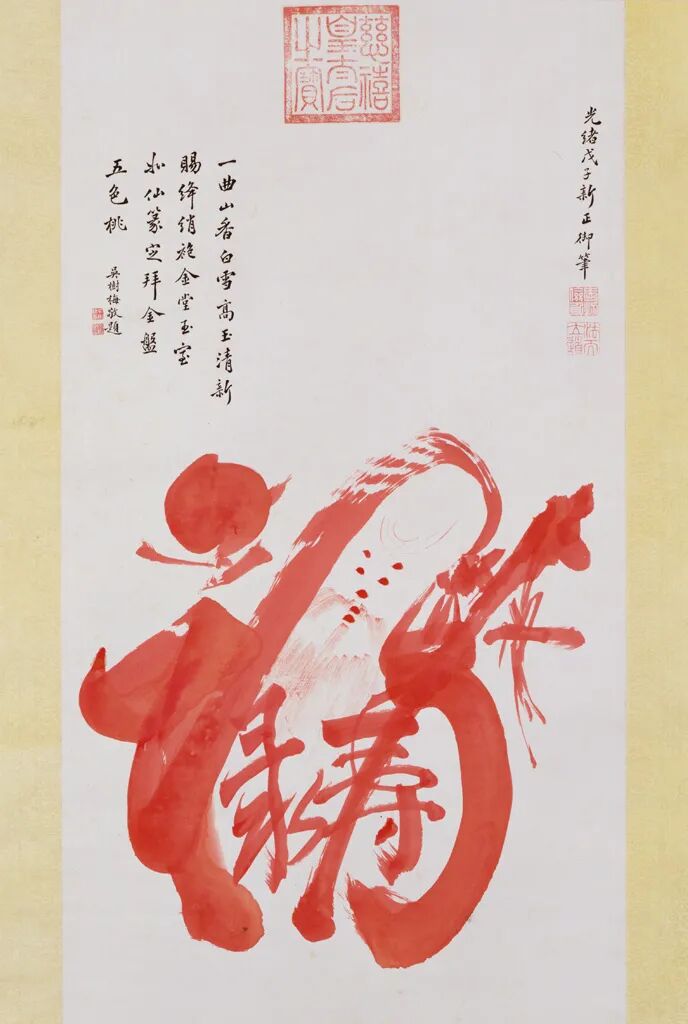 慈禧
皇太后
之寶
光緒戊子新正御筆
一曲山香白雪高玉清新
賜絳綃袍金堂玉室
如仙篆定拜金盤
五色桃
吳樹梅敬題
福
禄寿